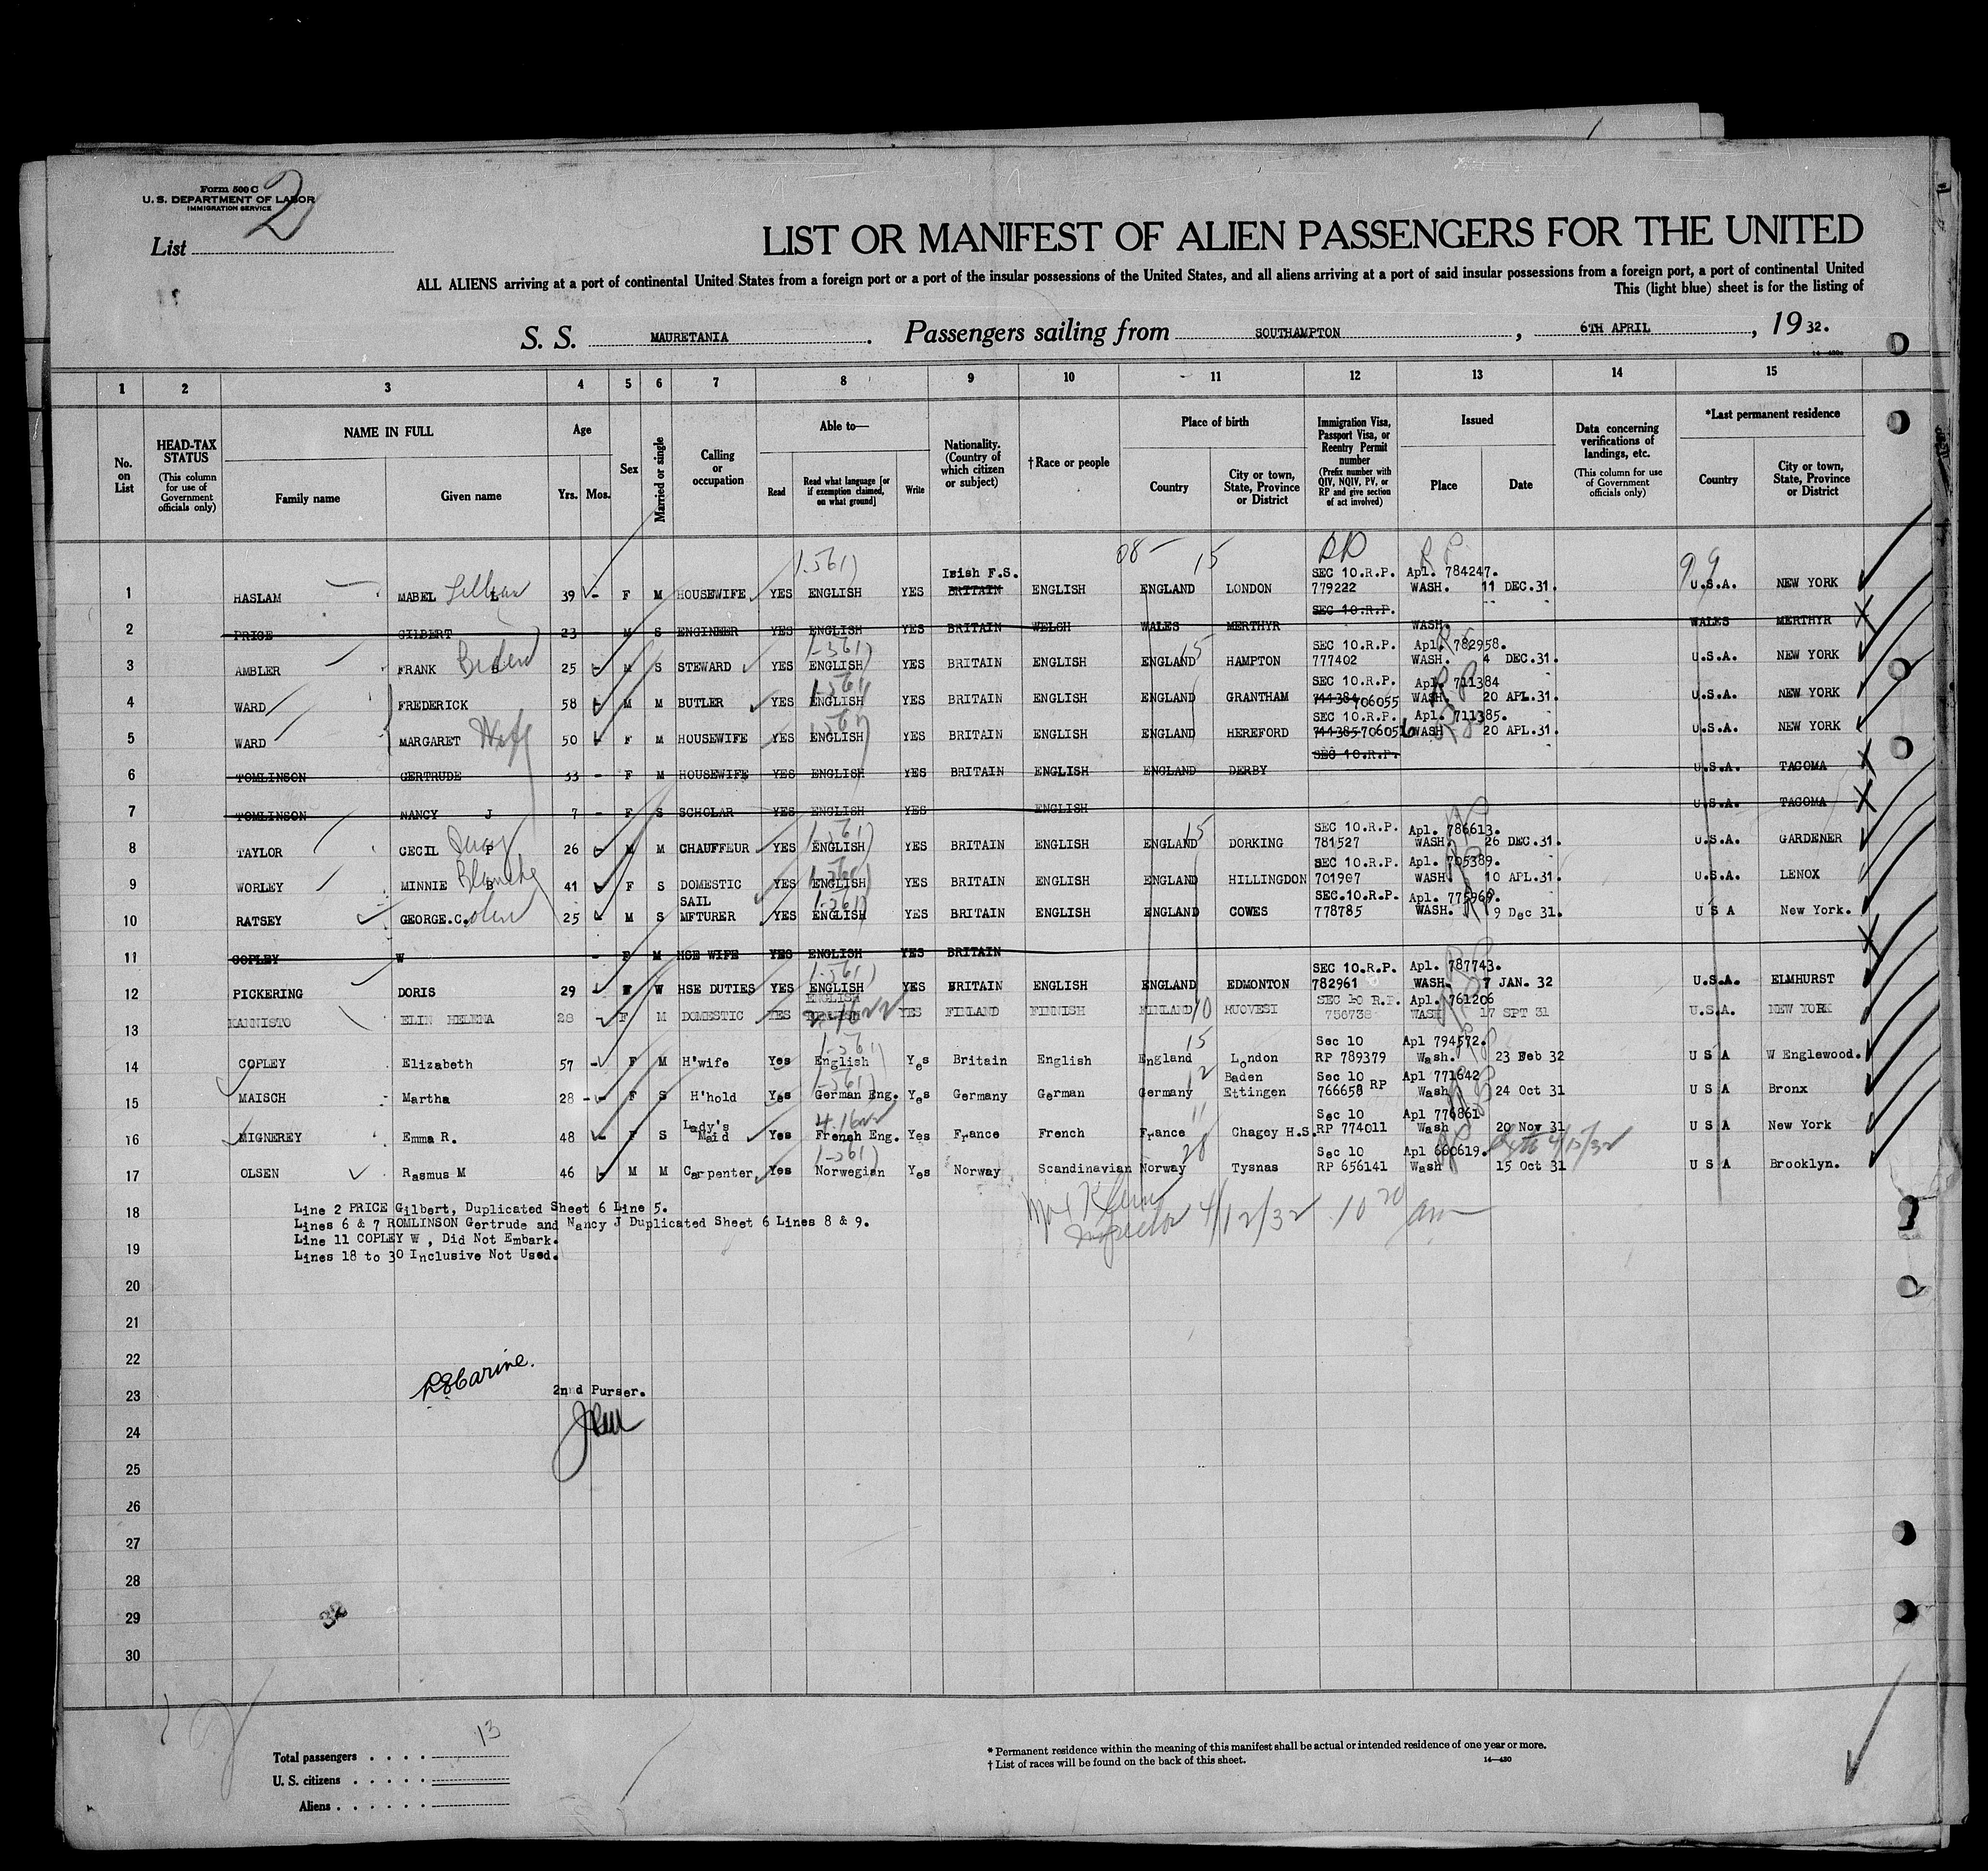 Form 500 C
U. S. DEPARTMENT OF LABOR
IMMIGRATION SERVICE
List 2
LIST OR MANIFEST OF ALIEN PASSENGERS FOR THE UNITED
ALL ALIENS arriving at a port of continental United States from a foreign port or a port of the insular possessions of the United States, and all aliens arriving at a port of said insular possessions from a foreign port, a port of continental United
This (light blue) sheet is for the listing of
S. S. MAURETANIA. Passengers sailing from SOUTHAMPTON, 6TH APRIL, 1932.
14—430a
1 2 3 4 5 6 7 8 9 10 11 12 13 14 15
No. on List
HEAD-TAX STATUS (This column for use of Government officials only)
NAME IN FULL
Family name Given name
Age
Yrs. Mos.
Sex
Married or single
Calling or occupation
Able to—
Read Read what language [or if exemption claimed, on what ground] Write
Nationality. (Country of which citizen or subject)
†Race or people
Place of birth
Country City or town, State, Province or District
Immigration Visa, Passport Visa, or Reentry Permit number (Prefix number with QIV, NQIV, PV, or RP and give section of act involved)
Issued
Place Date
Data concerning verifications of landings, etc. (This column for use of Government officials only)
*Last permanent residence
Country City or town, State, Province or District
08 — 15 RP RP 99
Irish F.S. SEC 10.R.P. Apl. 784247.
1 HASLAM MABEL Lillian L 39 - F M HOUSEWIFE YES ENGLISH YES BRITAIN ENGLISH ENGLAND LONDON 779222 WASH. 11 DEC.31. U.S.A. NEW YORK
SEC 10.R.P.
2 PRICE GILBERT 23 M S ENGINEER YES ENGLISH YES BRITAIN WELSH WALES MERTHYR WASH. WALES MERTHYR
SEC 10.R.P. Apl. 782958.
3 AMBLER FRANK B 25 M S STEWARD YES ENGLISH YES BRITAIN ENGLISH ENGLAND HAMPTON 777402 WASH. 4 DEC.31. U.S.A. NEW YORK
SEC 10.R.P. Apl. 711384
4 WARD FREDERICK 58 - M M BUTLER YES ENGLISH YES BRITAIN ENGLISH ENGLAND GRANTHAM 711384 706055 WASH 20 APL.31. U.S.A. NEW YORK
SEC 10.R.P. Apl. 711385.
5 WARD MARGARET Wife 50 - F M HOUSEWIFE YES ENGLISH YES BRITAIN ENGLISH ENGLAND HEREFORD 711385 706056 WASH 20 APL.31. U.S.A. NEW YORK
SEC 10.R.P.
6 TOMLINSON GERTRUDE 33 - F M HOUSEWIFE YES ENGLISH YES BRITAIN ENGLISH ENGLAND DERBY U.S.A. TACOMA
7 TOMLINSON NANCY J 7 - F S SCHOLAR YES ENGLISH YES ENGLISH U.S.A. TACOMA
SEC 10.R.P. Apl. 786613.
8 TAYLOR CECIL P 26 - M M CHAUFFEUR YES ENGLISH YES BRITAIN ENGLISH ENGLAND DORKING 781527 WASH. 26 DEC.31. U.S.A. GARDENER
SEC 10.R.P. Apl. 705389.
9 WORLEY MINNIE Blanche B 41 F S DOMESTIC YES ENGLISH YES BRITAIN ENGLISH ENGLAND HILLINGDON 701907 WASH. 10 APL.31. U.S.A. LENOX
SAIL SEC.10.R.P. Apl. 775969.
10 RATSEY GEORGE.C. 25 - M S MFTURER YES ENGLISH YES BRITAIN ENGLISH ENGLAND COWES 778785 WASH. 9 Dec 31. U S A New York.
11 COPLEY W - F M HSE WIFE YES ENGLISH YES BRITAIN
SEC 10.R.P. Apl. 787743.
12 PICKERING DORIS 29 - F W HSE DUTIES YES ENGLISH YES BRITAIN ENGLISH ENGLAND EDMONTON 782961 WASH. 7 JAN. 32 U.S.A. ELMHURST
ENGLISH SEC 10 R.P. Apl. 761206
13 KANNISTO ELIN HELENA 28 - F M DOMESTIC YES YES FINLAND FINNISH FINLAND 10 RUOVESI 756738 WASH 17 SPT 31 U.S.A. NEW YORK
Sec 10 Apl 794572.
14 COPLEY Elizabeth 57 - F M H'wife Yes English Yes Britain English England London RP 789379 Wash. 23 Feb 32 U S A W Englewood.
Baden Sec 10 Apl 771642
15 MAISCH Martha 28 - F S H'hold Yes German Eng. Yes Germany German Germany Ettingen 766658 RP Wash 24 Oct 31 U S A Bronx
Lady's Sec 10 Apl 776861
16 MIGNEREY Emma R. 48 - F S Maid Yes French Eng. Yes France French France Chagey H.S. RP 774011 Wash 20 Nov 31 U S A New York
Sec 10 Apl 660619.
17 OLSEN Rasmus M 46 M M Carpenter Yes Norwegian Yes Norway Scandinavian Norway Tysnas RP 656141 Wash 15 Oct 31 U S A Brooklyn.
18 Line 2 PRICE Gilbert, Duplicated Sheet 6 Line 5.
Lines 6 & 7 ROMLINSON Gertrude and Nancy J Duplicated Sheet 6 Lines 8 & 9.
Line 11 COPLEY W , Did Not Embark.
19 Lines 18 to 30 Inclusive Not Used.
Inspector 4/12/32 10 20 am
20
21
22
23 2nd Purser.
24
25
26
27
28
29 32
30
Total passengers . . . . 13
U. S. citizens . . . . .
Aliens . . . . . .
* Permanent residence within the meaning of this manifest shall be actual or intended residence of one year or more.
† List of races will be found on the back of this sheet. 14—430